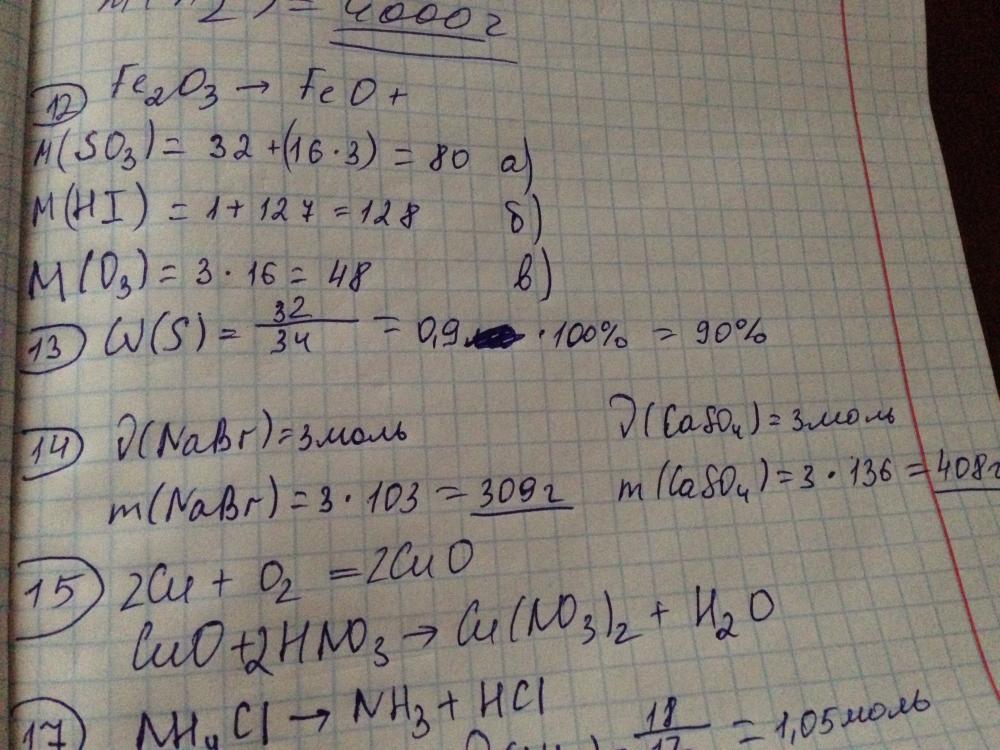 = 4000г
12 Fe₂O₃ → FeO +
M(SO₃) = 32 + (16·3) = 80 а)
M(HI) = 1 + 127 = 128 б)
M(O₃) = 3 · 16 = 48 в)
13 W(S) = 32/34 = 0,9 · 100% = 90%
14 ν(NaBr) = 3 моль ν(CaSO₄) = 3 моль
m(NaBr) = 3 · 103 = 309г m(CaSO₄) = 3 · 136 = 408г
15 2Cu + O₂ = 2CuO
CuO + 2HNO₃ → Cu(NO₃)₂ + H₂O
17 NH₄Cl → NH₃ + HCl
= 1,05 моль